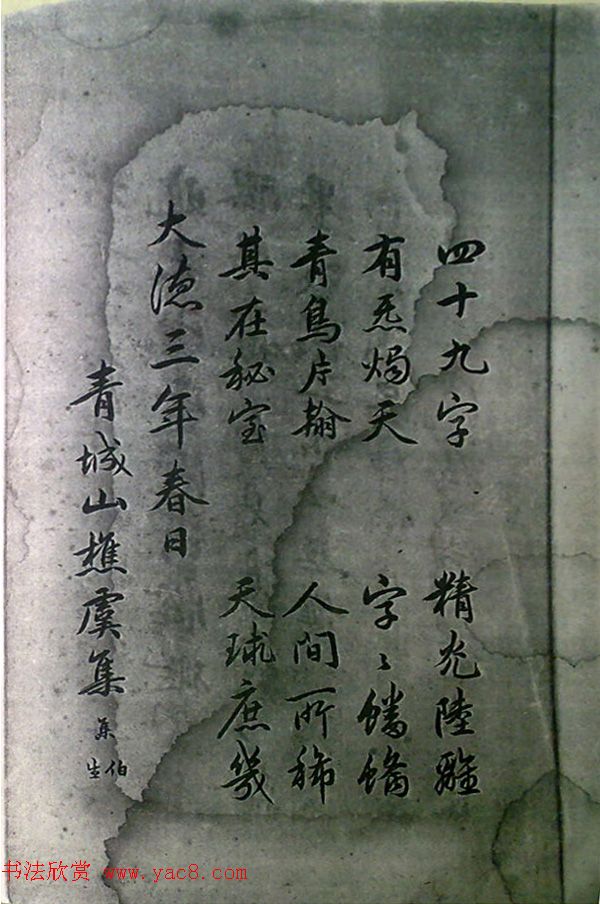 四十九字 精光陸離
有炁燭天 字〻蟠螭
青鳥片翰 人間所稀
其在秘宝 天球庶幾
大德三年春日
青城山樵虞集 集 伯生
书法欣赏 www.yac8.com